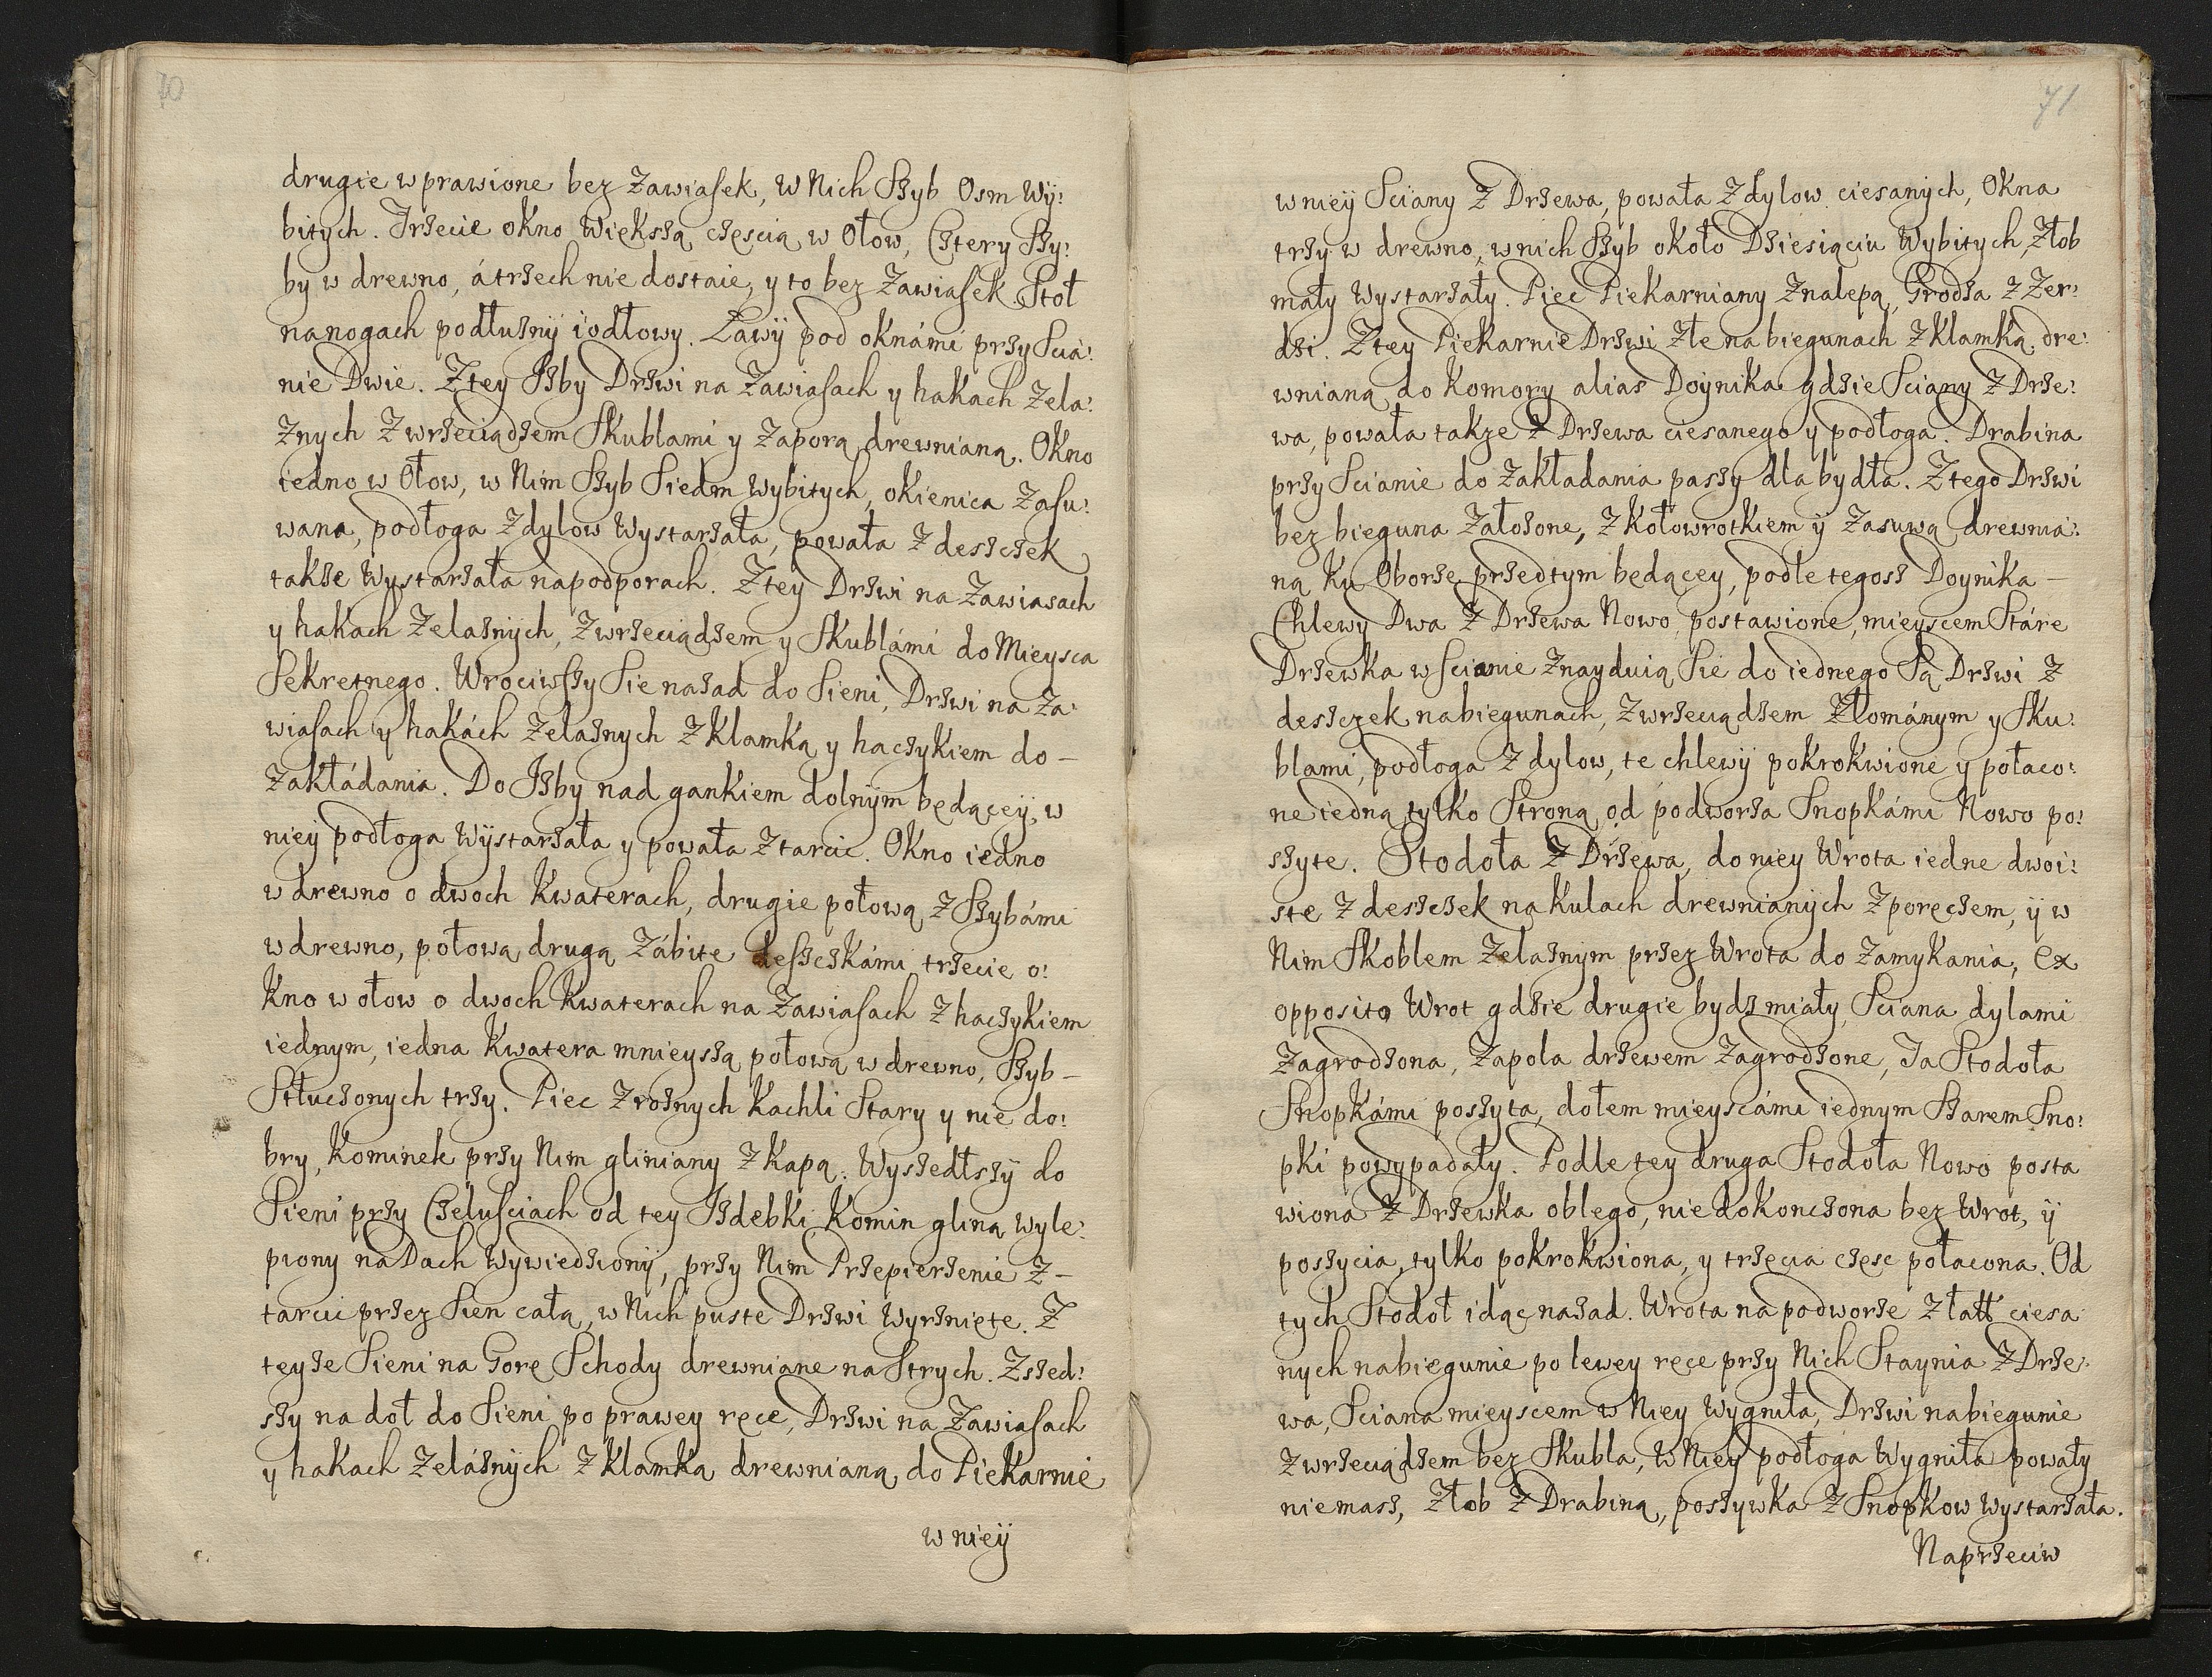 70
drugie wprawione bez Zawiasek, w Nich Szyb Osm Wÿ:
bitych. Trzecie okno większą częscią w Ołow, Cztery Szy:
by w drewno, á trzech nie dostaie, y to bez Zawiasek Stoł
na nogach podłużnÿ iodłowy. Ławÿ pod oknámi przy Sciá:
nie Dwie. Z tey Izby Drzwi na Zawiasach y hakach Zela:
znych Z wrzeciądzem Skublami y Zaporą drewnianą. Okno
iedno w Ołow, w Nim Szyb Siedm Wybitych, okienica Zasu:
wana, podłoga Z dylow Wystarzała, powała Z deszczek
takze Wystarzała na podporach. Z tey Drzwi na Zawiasach
y hakach Zelaznÿch, Z wrzeciądzem y Skublámi do Mieysca
Sekretnego. Wrociwszy Sie nazad do Sieni, Drzwi na Za:
wiasach y hakách Zelaznych Z Klamką y haczykiem do –
Zakłádania. Do Izby nad gankiem dolnÿm będąceÿ, w
nieÿ podłoga Wÿstarzała y powała Z tarcic. Okno iedno
w drewno o dwoch Kwaterach, drugie połową Z Szybámi
w drewno, połową drugą Zábite deszczkámi, trzecie o:
kno w ołow o dwoch Kwaterach na Zawiasach Z haczykiem
iednym, iedna Kwatera mnieyszą połową w drewno, Szyb –
Stłuczonych trzy. Piec Z roznych Kachli Stary y nie do:
bry, Kominek przy Nim gliniany Z Kapą. Wyszedłszÿ do
Sieni przy Czelusciach od tey Izdebki, Komin gliną wyle:
piony na Dach Wywiedzionÿ, przy Nim Przepierzenie Z –
tarcic przez Sien całą, w Nich puste Drzwi Wyrznięte. Z
teyze Sieni na Gorę Schody drewniane na Strych. Zszed:
szy na doł do Sieni po prawey ręce, Drzwi na Zawiasach
y hakach Zeláznÿch Z Klamką drewnianą do Piekarnie
w nieÿ
71
w nieÿ Sciany Z Drzewa, powała Z dylow ciesanÿch, Okna
trzy w drewno, w nich Szyb około Dziesiąciu Wybitych, Złob
mały Wystarzały. Piec Piekarniany Z nalepą, Grodza Z Zer:
dzi. Z tey Piekarnie Drzwi Złe na biegunach Z Klamką dre:
wnianą do Komory alias Doÿnika gdzie Sciany Z Drze:
wa, powała takze Z Drzewa ciesanego y podłoga. Drabina
przy Scianie do Zakładania paszy dla bydła. Z tego Drzwi
bez bieguna Załozone, Z Kołowrotkiem ÿ Zasuwą drewniá:
ną Ku Oborze przedtym będącey, podle tegosz Doynika –
Chlewy Dwa Z Drzewa Nowo postawione, mieyscem Stáre
Drzewka w scianie Znayduią Sie do iednego Są Drzwi Z
deszczek na biegunach, Z wrzeciądzem Złománym y Sku:
blami, podłoga Z dylow, te chlewÿ pokrokwione y połaco:
ne iedną tylko Stroną od podworza Snopkámi Nowo po:
szyte. Stodoła Z Drzewa, do niey Wrota iedne dwoi:
ste Z deszczek na Kulach drewnianÿch Z poręczem, ÿ w
Nim Skoblem Zelaznym przez Wrota do Zamykania, Ex
opposito Wrot gdzie drugie bydz miały Sciana dylami
Zagrodzona, Zapola drzewem Zagrodzone, Ta Stodoła
Snopkámi poszyta, dołem mieyscámi iednym Szarem Sno:
pki powypadały. Podle tey druga Stodoła Nowo posta
wiona Z Drzewka oblego, nie dokonczona bez Wrot, ÿ
poszycia, tylko pokrokwiona, y trzecia częsc połacona. Od
tych Stodoł idąc nazad. Wrota na podworze Z łatt ciesa
nych na biegunie po lewey ręce przy Nich Staynia Z Drze:
wa, Sciana mieyscem w Niey Wygniła, Drzwi na biegunie
Z wrzeciądzem bez Skubla, w Niey podłoga Wygniła powały
niemasz, Złob Z Drabiną, poszywka Z Snopkow wystarzała.
Naprzeciw